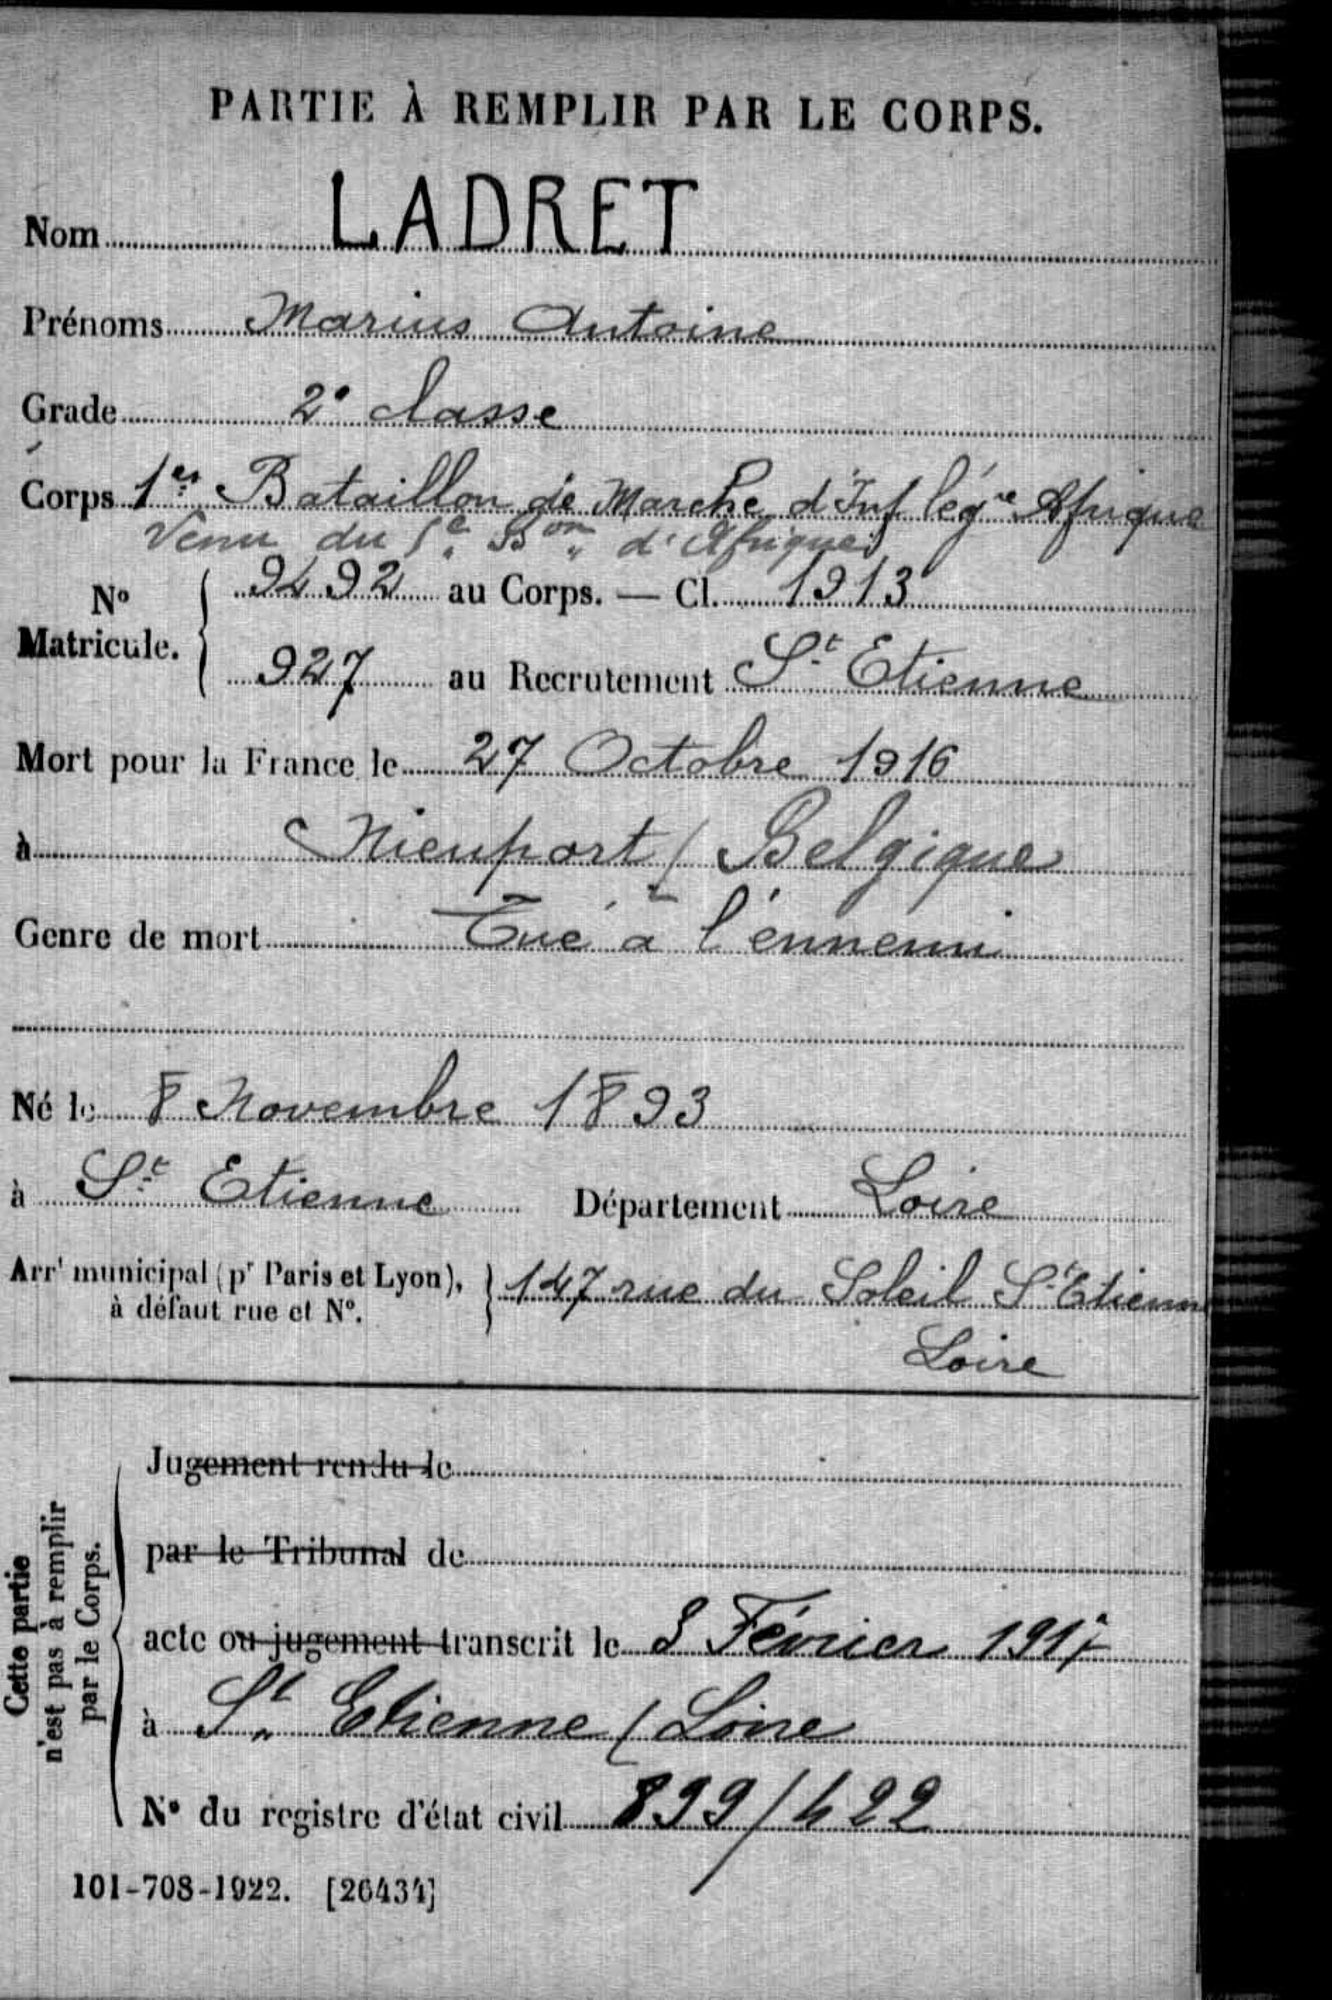 PARTIE À REMPLIR PAR LE CORPS.
Nom LADRET
Prénoms Marius Antoine
Grade 2e classe
Corps 1er Bataillon de Marche d'Inf légre Afrique
Venu du 5e Bon d'Afrique
No Matricule. { 9492 au Corps. — Cl. 1913
927 au Recrutement St Etienne
Mort pour la France le 27 Octobre 1916
à Nieuport / Belgique
Genre de mort Tué à l'énnemi
Né le 8 Novembre 1893
à St Etienne Département Loire
Arrt municipal (pr Paris et Lyon), à défaut rue et No. } 147 rue du Soleil St Etienne
Loire
Cette partie n'est pas à remplir par le Corps.
Jugement rendu le
par le Tribunal de
acte ou jugement transcrit le 3 Février 1917
à St Etienne / Loire
No du registre d'état civil 899/422
101-708-1922. [26434]